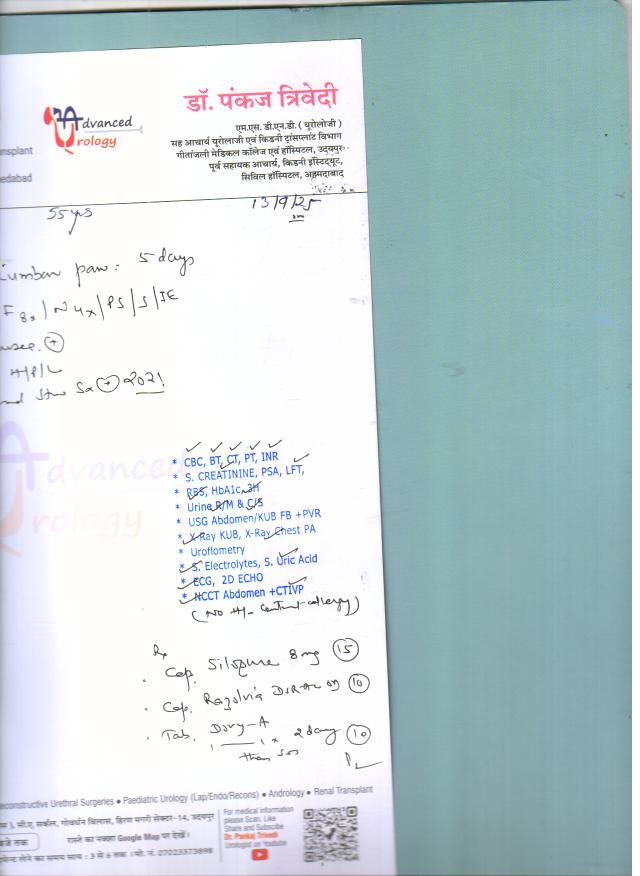 डॉ. पंकज त्रिवेदी
Advanced
Urology
एम.एस. डी.एन.बी. ( यूरोलोजी )
सह आचार्य यूरोलाजी एवं किडनी ट्रांसप्लांट विभाग
nsplant
गीतांजली मेडिकल कॉलेज एवं हॉस्पिटल, उदयपुर
पूर्व सहायक आचार्य, किडनी इंस्टिट्यूट,
edabad
सिविल हॉस्पिटल, अहमदाबाद
55 yrs
13/9/25
Lumbar pain : 5 days
F 8x / N 4x / PS / S / IE
+
H/P/L
Sx + 2021
* CBC, BT, CT, PT, INR
* S. CREATININE, PSA, LFT,
* RBS, HbA1c, 3H
* Urine R/M & C/S
* USG Abdomen/KUB FB +PVR
* X-Ray KUB, X-Ray Chest PA
* Uroflometry
* S. Electrolytes, S. Uric Acid
* ECG, 2D ECHO
* NCCT Abdomen +CTIVP
(No H/- allergy)
Advanced
rology
Rx
Cap. Silopure 8mg 15
Cap. DSR 10
Tab. -A
1 — 1 x 2 days 10
then sos
econstructive Urethral Surgeries • Paediatric Urology (Lap/Endo/Recons) • Andrology • Renal Transplant
), सी.ए. सर्कल, गोवर्धन विलास, हिरण मगरी सेक्टर-14, उदयपुर
बजे तक
रास्ते का नक्शा Google Map पर देखें।
लेने का समय साय : 3 से 6 तक । मो. नं. 07023373898
For medical information
please Scan, Like
Share and Subscribe
Dr. Pankaj Trivedi
Urologist on Youtube